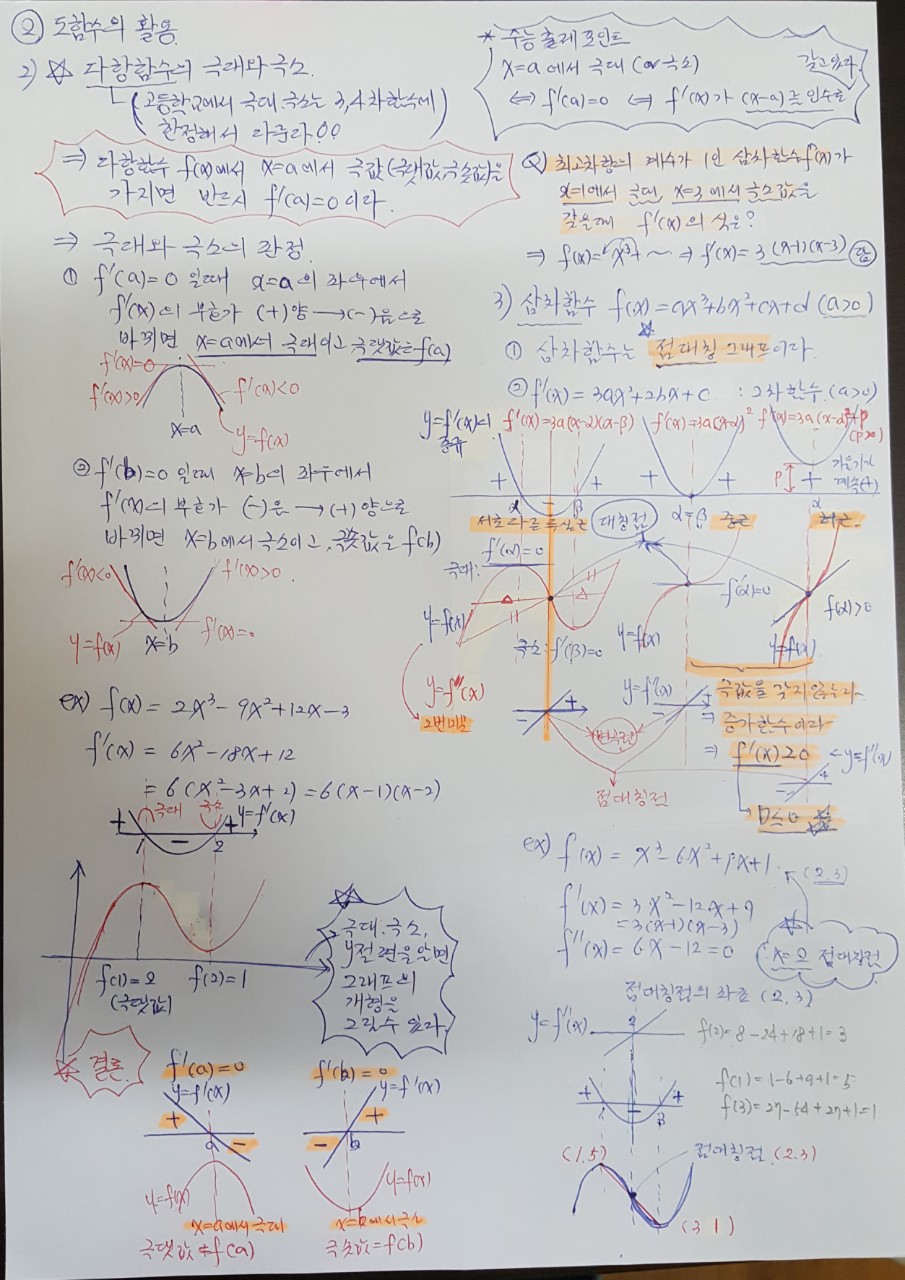 ② 도함수의 활용
2) ☆ 다항함수의 극대와 극소.
(고등학교에서 극대.극소는 3,4차함수에
한정해서 다룬다!!)
⇒ 다항함수 f(x)에서 x=a에서 극값(극댓값,극솟값)을
가지면 반드시 f'(a)=0 이다.
⇒ 극대와 극소의 판정
① f'(a)=0 일때 x=a의 좌우에서
f'(x)의 부호가 (+)양 → (-)음으로
바뀌면 x=a에서 극대이고 극댓값은 f(a)
f'(x)=0
f'(x)>0
f'(x)<0
x=a
y=f(x)
② f'(b)=0 일때 x=b의 좌우에서
f'(x)의 부호가 (-)음 → (+)양으로
바뀌면 x=b에서 극소이고, 극솟값은 f(b)
f'(x)<0
f'(x)>0
y=f(x)
x=b
f'(x)=0
ex) f(x) = 2x³-9x²+12x-3
f'(x) = 6x²-18x+12
= 6(x²-3x+2) = 6(x-1)(x-2)
극대 극소 y=f'(x)
+ - +
1 2
f(1)=2
(극댓값)
f(2)=1
극대.극소,
y절편을알면
그래프의
개형을
그릴수 있다.
☆ 결론.
f'(a)=0
y=f'(x)
+ a -
y=f(x)
x=a에서 극대
극댓값=f(a)
f'(b)=0
y=f'(x)
- b +
y=f(x)
x=b에서 극소
극솟값=f(b)
* 수능 출제 포인트
x=a에서 극대 (or 극소)
⇔ f'(a)=0 ⇔ f'(x)가 (x-a)를 인수로
갖고있다.
Q) 최고차항의 계수가 1인 삼차함수 f(x)가
x=1에서 극대, x=3에서 극소값을
갖을때 f'(x)의 식은?
⇒ f(x)=x³+~ ⇒ f'(x)=3(x-1)(x-3) 답
3) 삼차함수 f(x)=ax³+bx²+cx+d (a>0)
① 삼차함수는 점대칭 그래프이다.
② f'(x)=3ax²+2bx+c : 2차함수(a>0)
y=f'(x)의
f'(x)=3a(x-α)(x-β)
f'(x)=3a(x-α)²
f'(x)=3a(x-α)²+p
(p>0)
+ α - β +
+ α=β +
p + α
서로다른 두실근
대칭점
중근
허근.
극대:
f'(α)=0
y=f(x)
극소: f'(β)=0
f'(α)=0
y=f(x)
f'(α)>0
y=f(x)
y=f''(x)
2번미분
- +
y=f''(x)
- +
변곡점
점대칭점
극값을 갖지 않는다.
⇒ 증가함수이다
⇒ f'(x)≥0
y=f''(x)
- +
D≤0
ex) f(x) = x³-6x²+9x+1.
(2,3)
f'(x) = 3x²-12x+9
= 3(x-1)(x-3)
f''(x) = 6x-12=0
x=2 점대칭점
점대칭점의 좌표 (2,3)
y=f''(x)
2
f(2)=8-24+18+1=3
f(1)=1-6+9+1=5
f(3)=27-54+27+1=1
+ - +
(1,5)
점대칭점.(2,3)
(3,1)